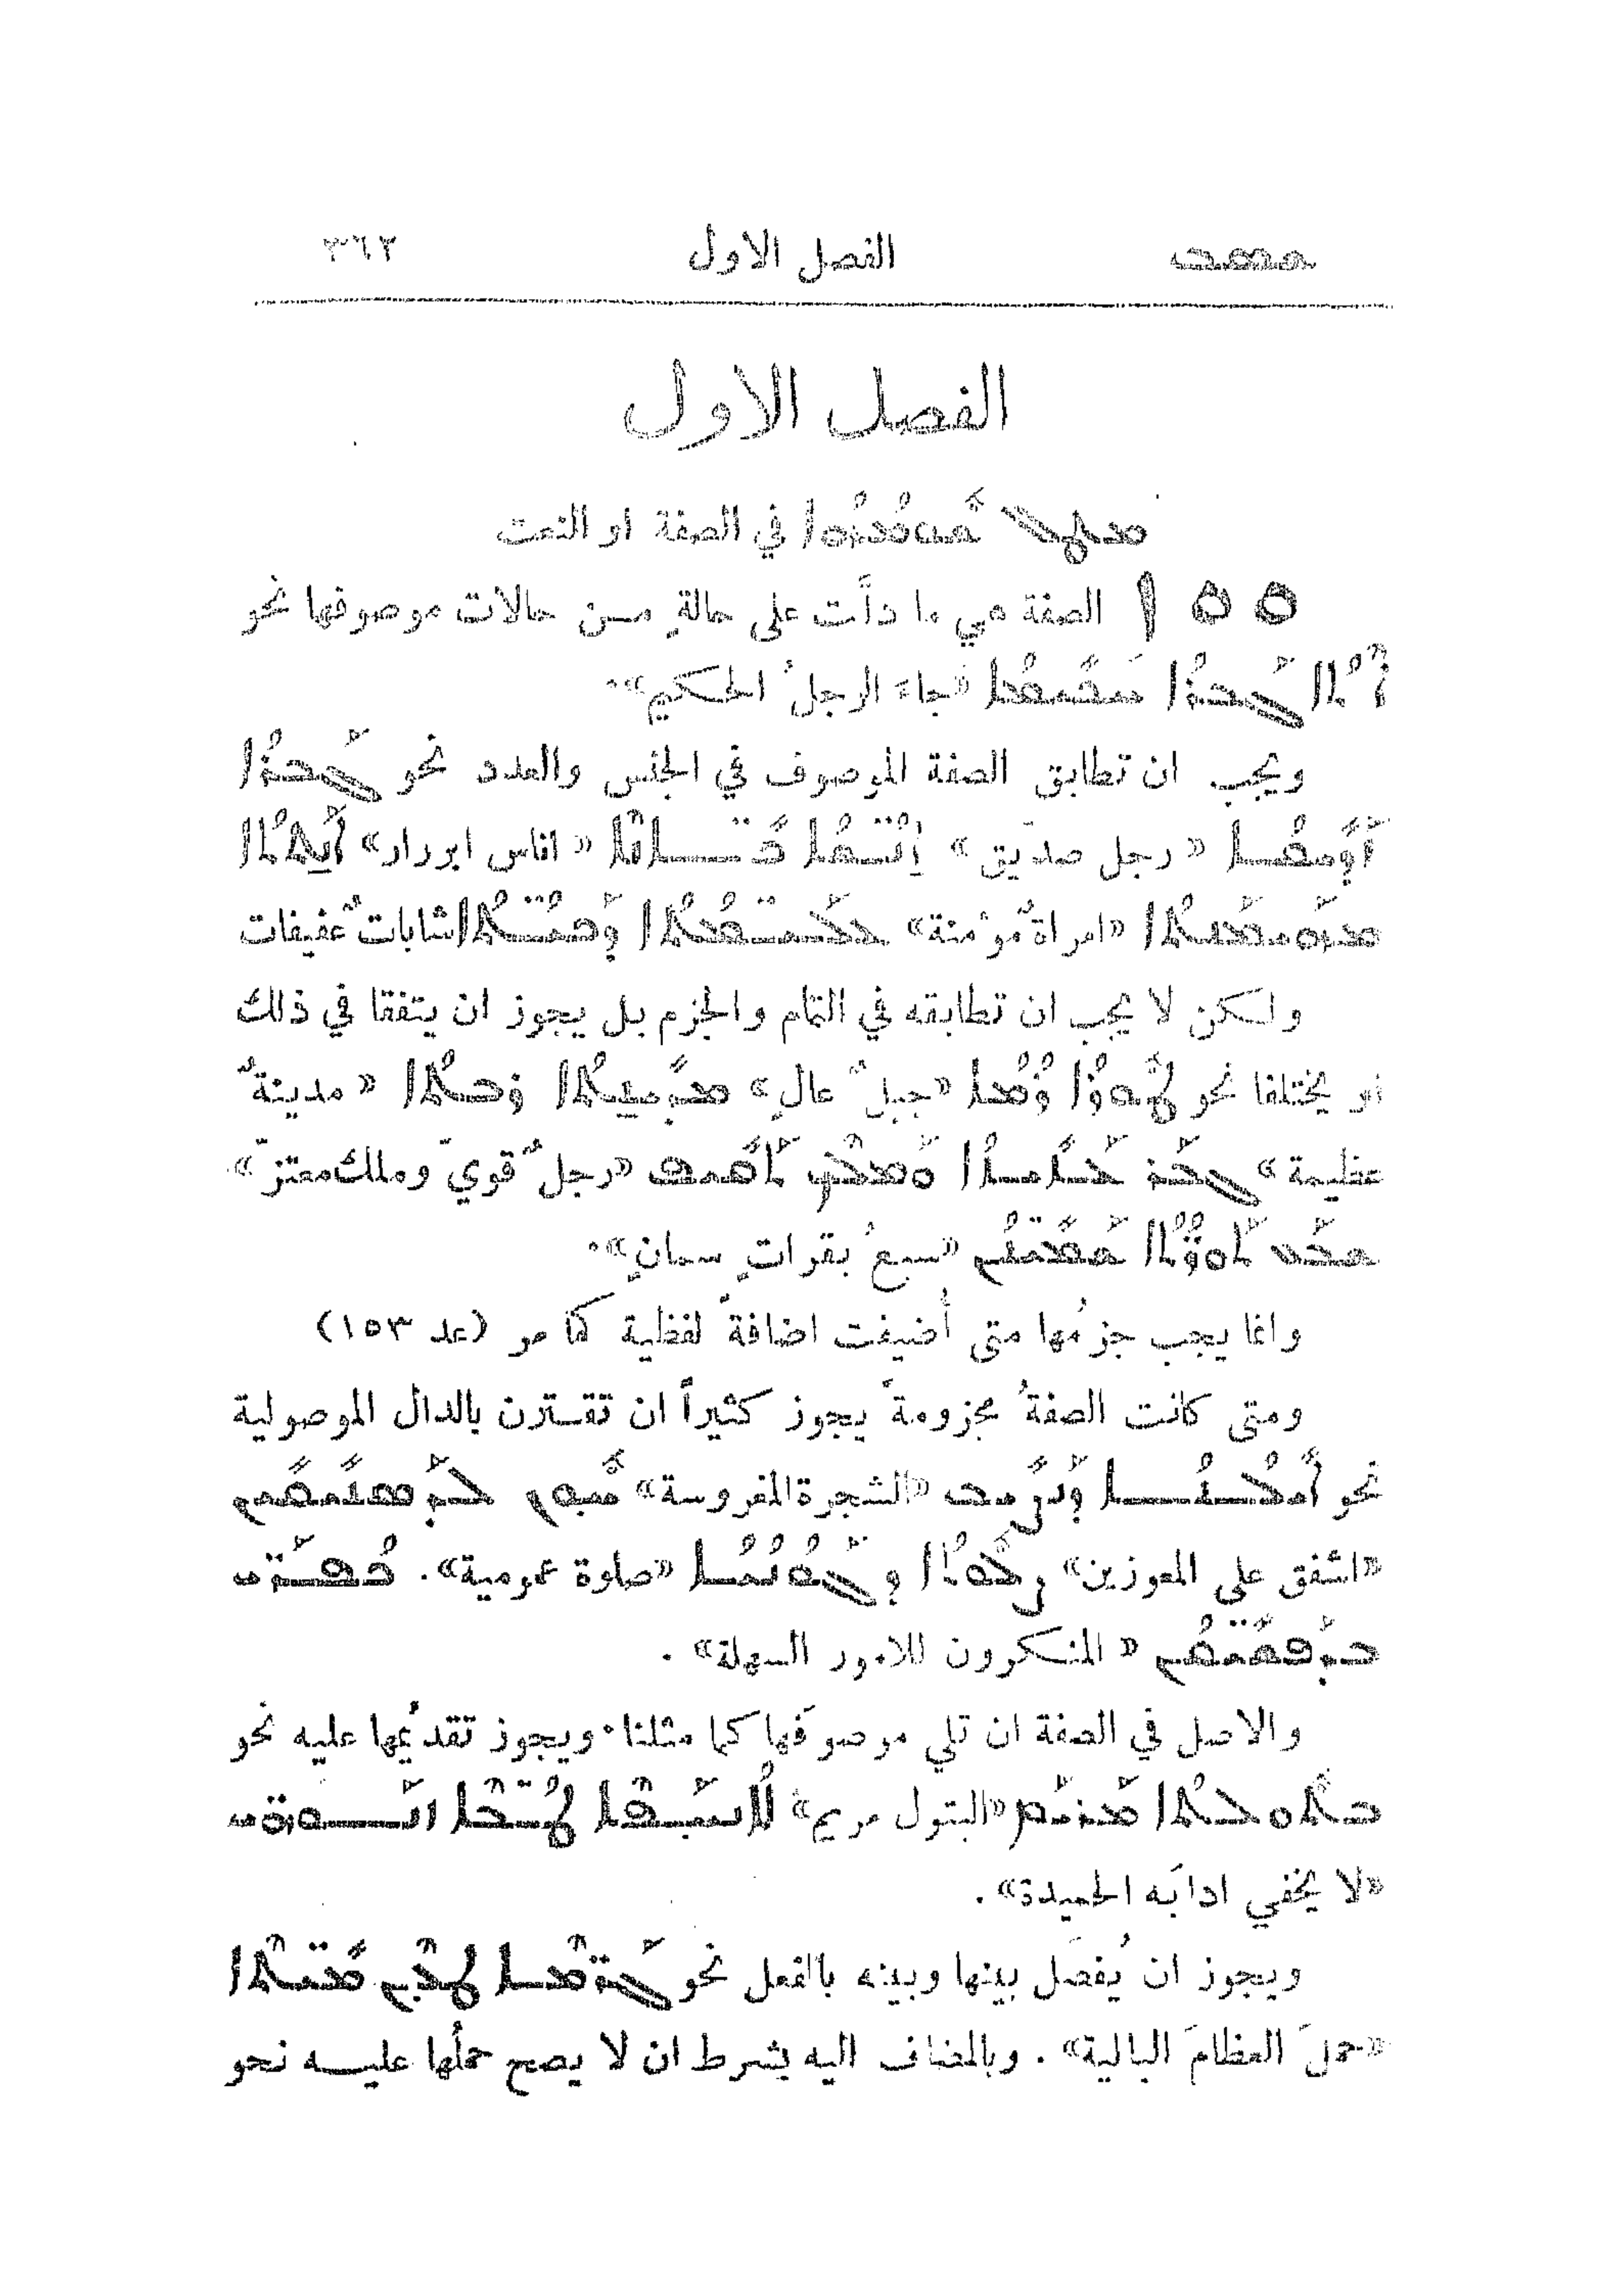 الفصل الاول ٣٦٣
الفصل الاول
ܡܛܠ ܫܘܡܗܐ في الصفة او النعت
١٥٥ الصفة هي ما دلَّت على حالةٍ من حالات موصوفها نحو
ܐܬܐ ܓܒܪܐ ܚܟܝܡܐ «جاءَ الرجلُ الحكيم»·
ويجب ان تطابق الصفة الموصوف في الجنس والعدد نحو ܓܒܪܐ
ܙܕܝܩܐ «رجل صدّيق» ܐܢܫܐ ܟܐܢܐ «اناس ابرار» ܐܢܬܬܐ
ܡܗܝܡܢܬܐ «امراةٌ مؤمنة» ܥܠܝܡܬܐ ܢܟܦܬܐ شاباتٌ عفيفات
ولكن لا يجب ان تطابقه في التمام والجزم بل يجوز ان يتفقا في ذلك
او يختلفا نحو ܛܘܪܐ ܪܡܐ «جبلٌ عالٍ» ܡܕܝܢܬܐ ܪܒܬܐ «مدينةٌ
عظيمة» ܓܒܪ «رجلٌ قويّ وملك معتزّ»
ܫܒܥ ܬܘܪܬܐ ܫܡܝܢܢ «سبعُ بقراتٍ سمانٍ»·
وانما يجب جزمُها متى أُضيفت اضافةً لفظية كما مر (عد ١٥٣)
ومتى كانت الصفةُ مجزومةً يجوز كثيراً ان تقترن بالدال الموصولية
نحو ܐܝܠܢܐ ܕܢܨܝܒ «الشجرة المغروسة» ܚܘܣ ܥܠ ܕܣܢܝܩܝܢ
«اشفق على المعوزين» ܨܠܘܬܐ ܕܓܘܢܝܐ «صلوة عمومية».
ܒܕܦܫܝܩܢ «المنكرون للامور السهلة».
والاصل في الصفة ان تلي موصوفَها كما مثلنا· ويجوز تقديمُها عليه نحو
ܒܬܘܠܬܐ ܡܪܝܡ «البتول مريم» ܠܐ
«لا يخفي ادابَه الحميدة».
ويجوز ان يُفصَل بينها وبينه بالفعل نحو ܓܪܡܐ ܛܥܢ
«حملَ العظامَ البالية». وبالمضاف اليه بشرط ان لا يصح حملُها عليه نحو